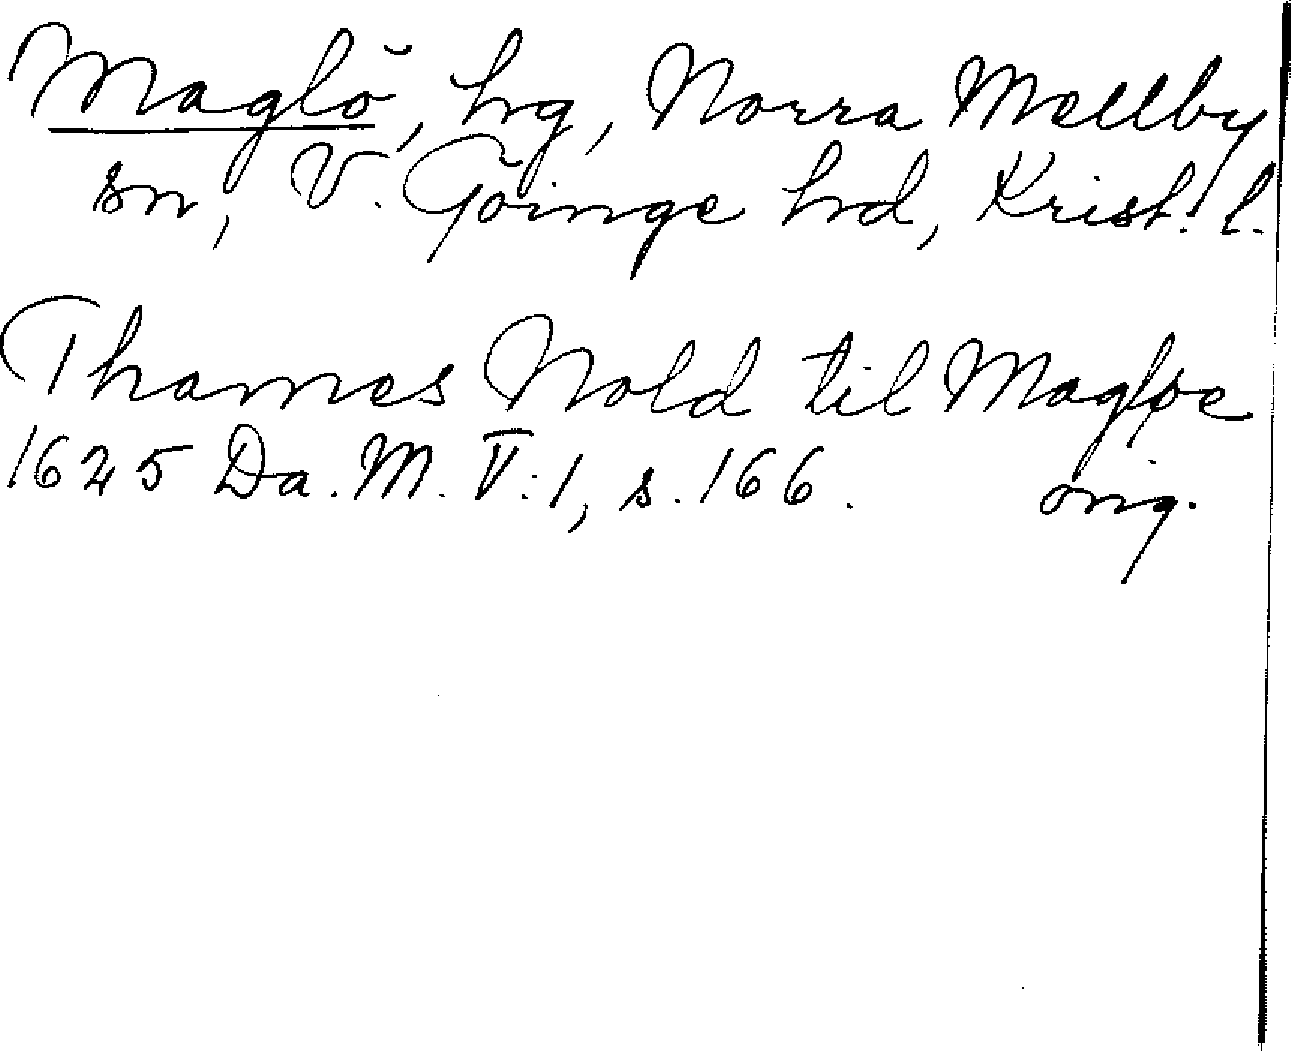 Maglö, hg, Norra Mellby
sn, V. Göinge hd, Krist. l.
Thames Nold til Magløe
1625 Da. M. V:1, s. 166. orig.